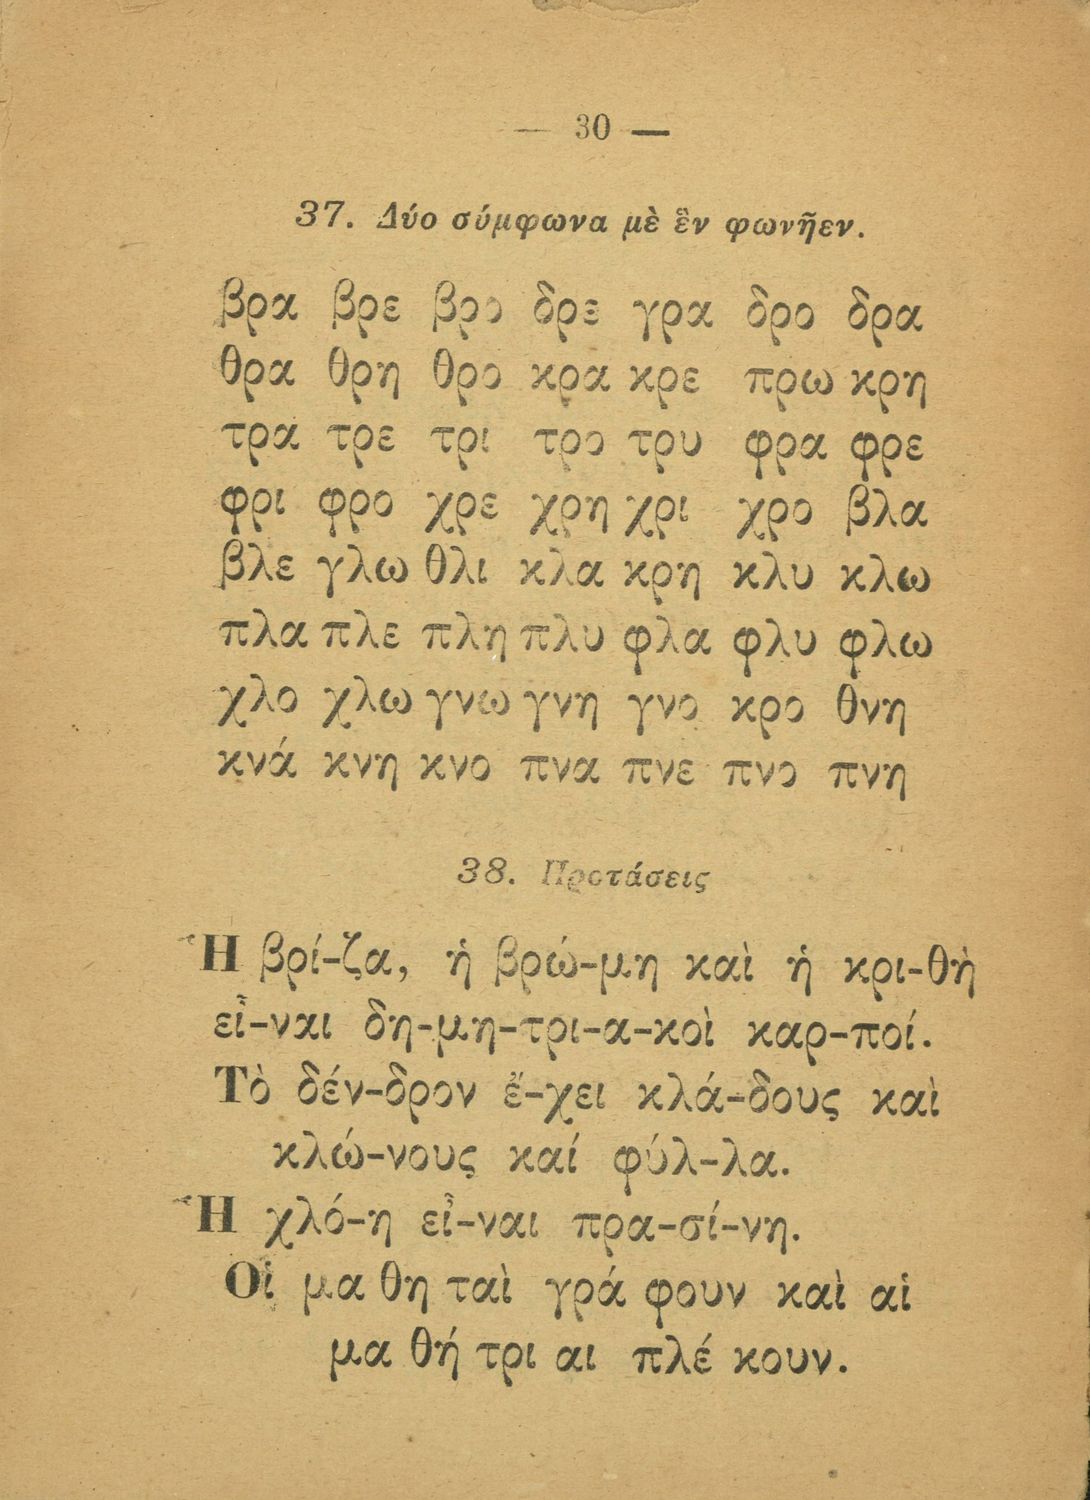 — 30 —
37. Δύο σύμφωνα μὲ ἓν φωνῆεν.
βρα βρε βρο δρε γρα δρο δρα
θρα θρη θρο κρα κρε πρω κρη
τρα τρε τρι τρο τρυ φρα φρε
φρι φρο χρε χρη χρι χρο βλα
βλε γλω θλι κλα κρη κλυ κλω
πλα πλε πλη πλυ φλα φλυ φλω
χλο χλω γνω γνη γνο κρο θνη
κνά κνη κνο πνα πνε πνο πνη
38. Προτάσεις
Ἡ βρί-ζα, ἡ βρώ-μη καὶ ἡ κρι-θὴ
εἶ-ναι δη-μη-τρι-α-κοὶ καρ-ποί.
Τὸ δέν-δρον ἔ-χει κλά-δους καὶ
κλώ-νους καί φύλ-λα.
Ἡ χλό-η εἶ-ναι πρα-σί-νη.
Οἱ μα θη ταὶ γρά φουν καὶ αἱ
μα θή τρι αι πλέ κουν.